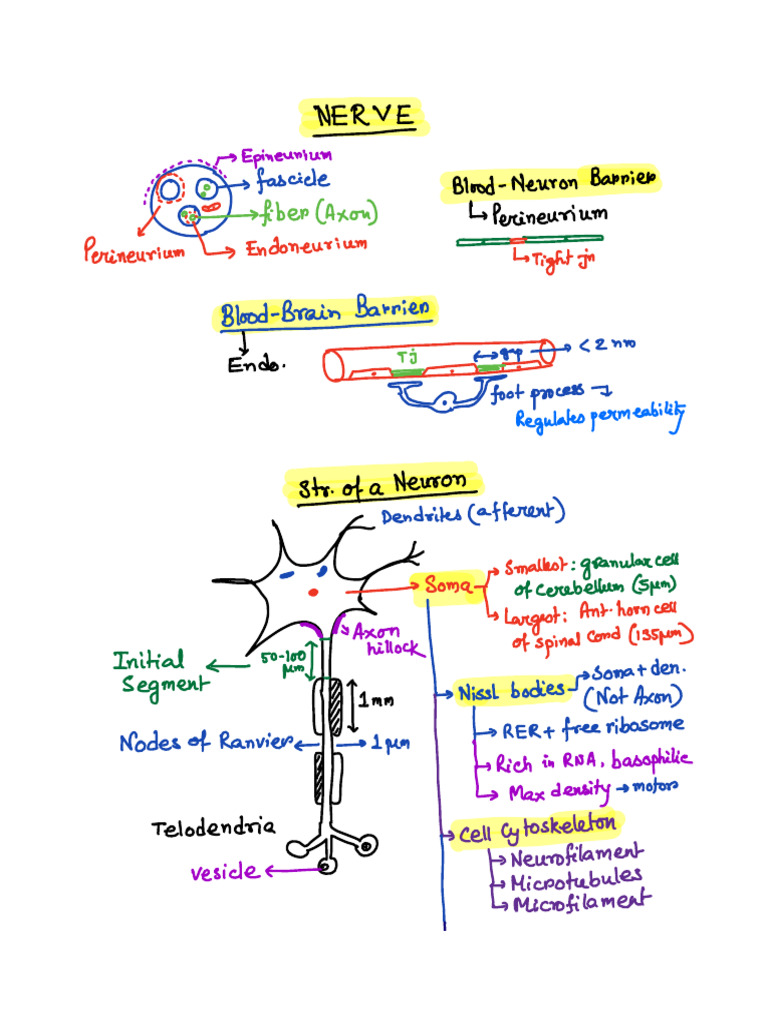 NERVE
Epineurium
fascicle
fiber (Axon)
Perineurium
Endoneurium
Blood-Neuron Barrier
Perineurium
Tight jn
Blood-Brain Barrier
Endo.
Tj
gap
< 2 nm
foot process
Regulates permeability
Str. of a Neuron
Dendrites (afferent)
Soma
Smallest: granular cell
of cerebellum (5μm)
Largest: Ant. horn cell
of spinal cord (135μm)
Axon
hillock
Initial
Segment
50-100
μm
1mm
Nodes of Ranvier
1μm
Telodendria
vesicle
Nissl bodies
Soma + den.
(Not Axon)
RER + free ribosome
Rich in RNA, basophilic
Max density → motor
Cell Cytoskeleton
Neurofilament
Microtubules
Microfilament